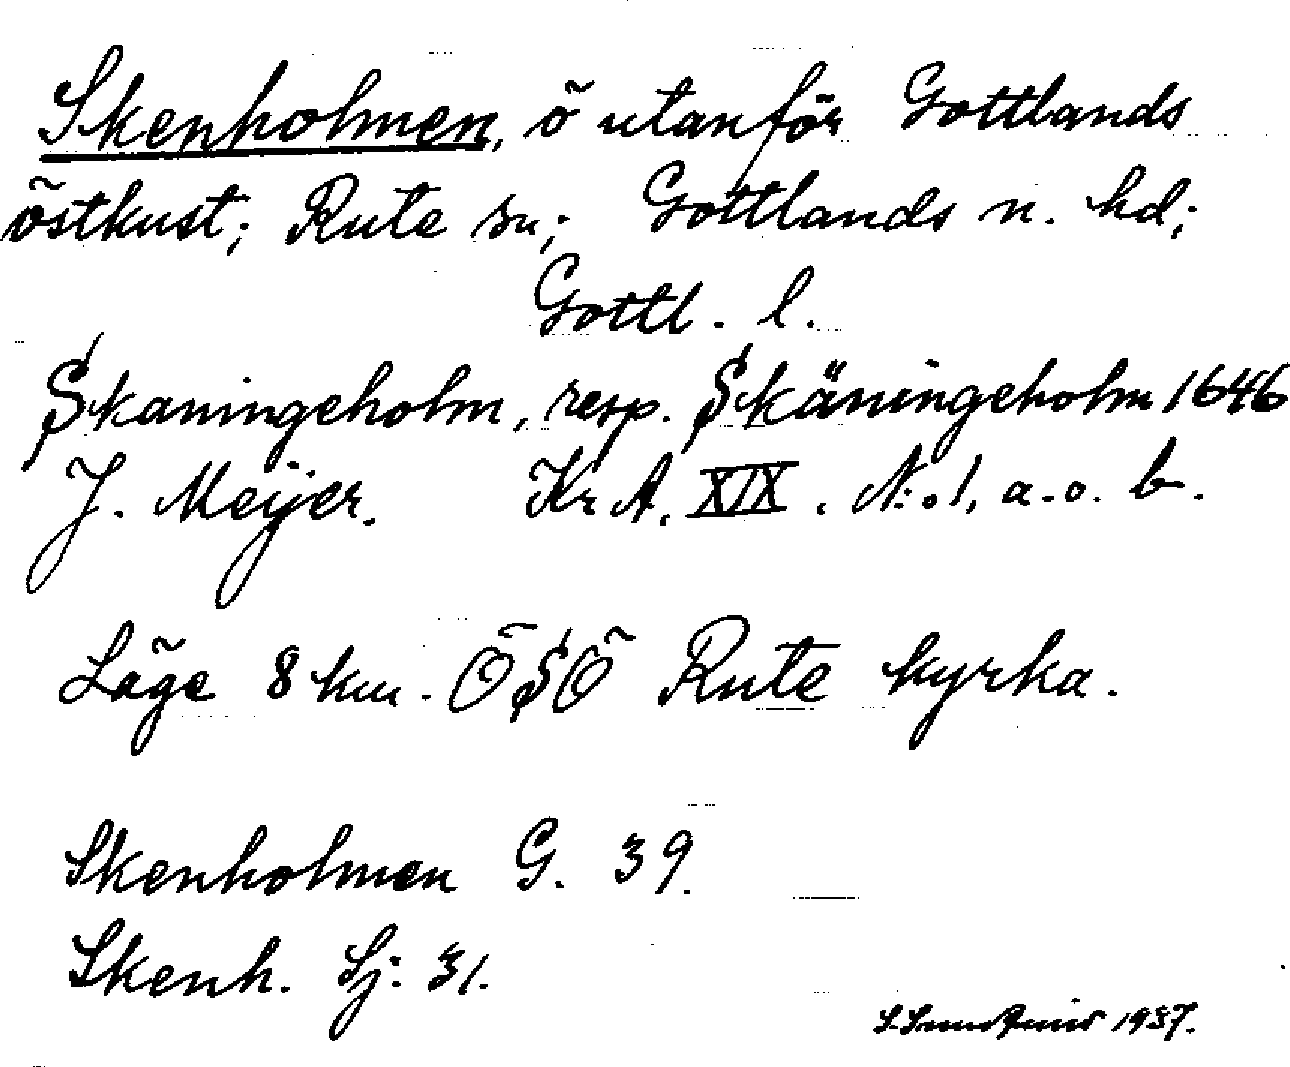 Skenholmen, ö utanför Gottlands
östkust; Rute sn; Gottlands n. hd;
Gottl. l.
Skaningeholm, resp. Skäningeholm 1646
J. Meijer. Kr A. XIX. N:o 1, a.o. b.
Läge 8 km. ÖSÖ Rute kyrka.
Skenholmen G. 39.
Skenh. Sj: 31.
1937.